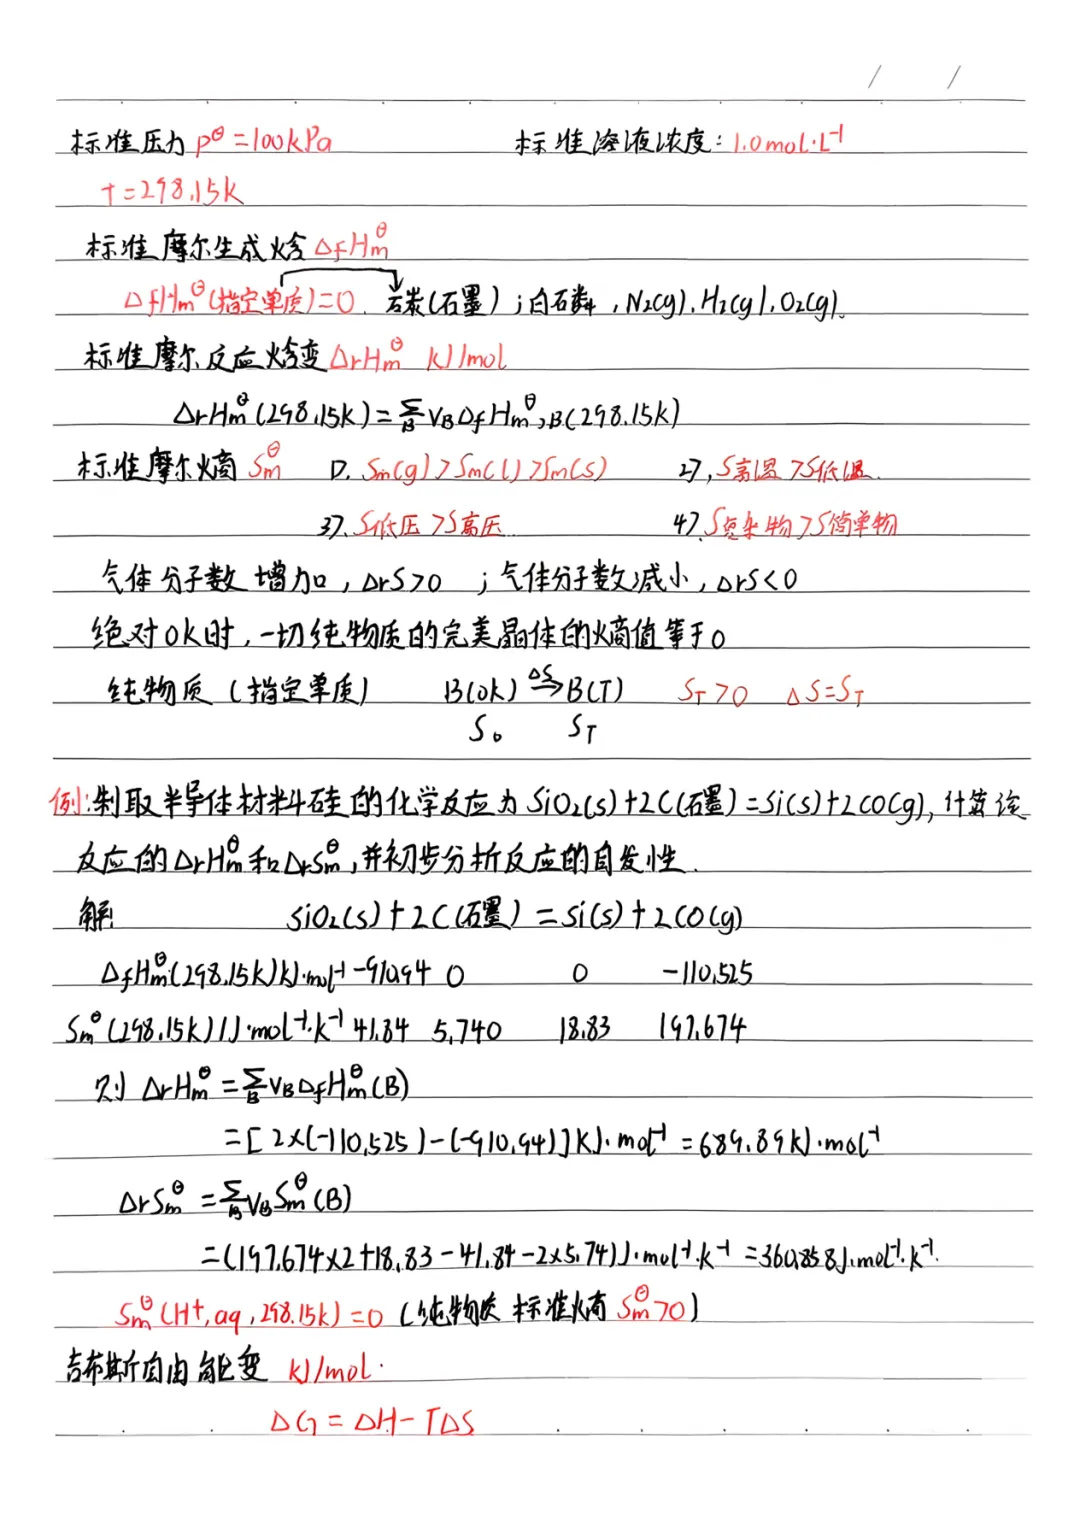 / /
标准压力 p^θ=100kPa 标准溶液浓度：1.0mol·L⁻¹
T=298.15K
标准摩尔生成焓 ΔfHm^θ
ΔfHm^θ(指定单质)=0. 石炭(石墨)；白石粦，N₂(g)，H₂(g)，O₂(g)。
标准摩尔反应焓变 ΔrHm^θ kJ/mol
ΔrHm^θ(298.15K)=Σ_B V_B ΔfHm^θ,B(298.15K)
标准摩尔熵 Sm^θ 1>. Sm(g)>Sm(l)>Sm(s) 2>, S高温>S低温.
3>. S低压>S高压. 4>. S复杂物>S简单物
气体分子数增加，ΔrS>0 ；气体分子数减小，ΔrS<0
绝对0K时，一切纯物质的完美晶体的熵值等于0
纯物质（指定单质） B(0K) →^ΔS B(T) S_T>0 ΔS=S_T
S₀ S_T
例：制取半导体材料硅的化学反应为SiO₂(s)+2C(石墨)=Si(s)+2CO(g)，计算该
反应的ΔrHm^θ和ΔrSm^θ，并初步分析反应的自发性.
解 SiO₂(s)+2C(石墨)=Si(s)+2CO(g)
ΔfHm^θ(298.15K)kJ·mol⁻¹ -910.94 0 0 -110.525
Sm^θ(298.15K)/J·mol⁻¹·K⁻¹ 41.84 5.740 18.83 197.674
则 ΔrHm^θ=Σ_B V_B ΔfHm^θ(B)
=[2×(-110.525)-(-910.94)]kJ·mol⁻¹=689.89kJ·mol⁻¹
ΔrSm^θ=Σ_B V_B Sm^θ(B)
=(197.674×2+18.83-41.84-2×5.74)J·mol⁻¹·K⁻¹=360.858J·mol⁻¹·K⁻¹.
Sm^θ(H⁺,aq,298.15K)=0（纯物质 标准熵 Sm^θ>0）
吉布斯自由能变 kJ/mol.
ΔG=ΔH-TΔS